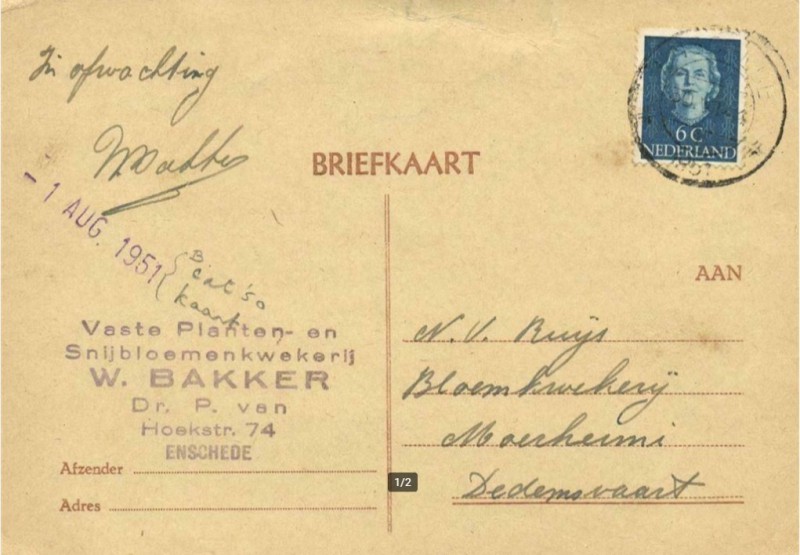 In afwachting
W Bakker
BRIEFKAART
- 1 AUG. 1951
B
cat '50
kaart
Vaste Planten- en
Snijbloemenkwekerij
W. BAKKER
Dr. P. van
Hoekstr. 74
ENSCHEDE
Afzender
Adres
6 C
NEDERLAND
1951
AAN
N.V. Ruijs
Bloemkwekerij
Moerheimi
Dedemsvaart
1/2